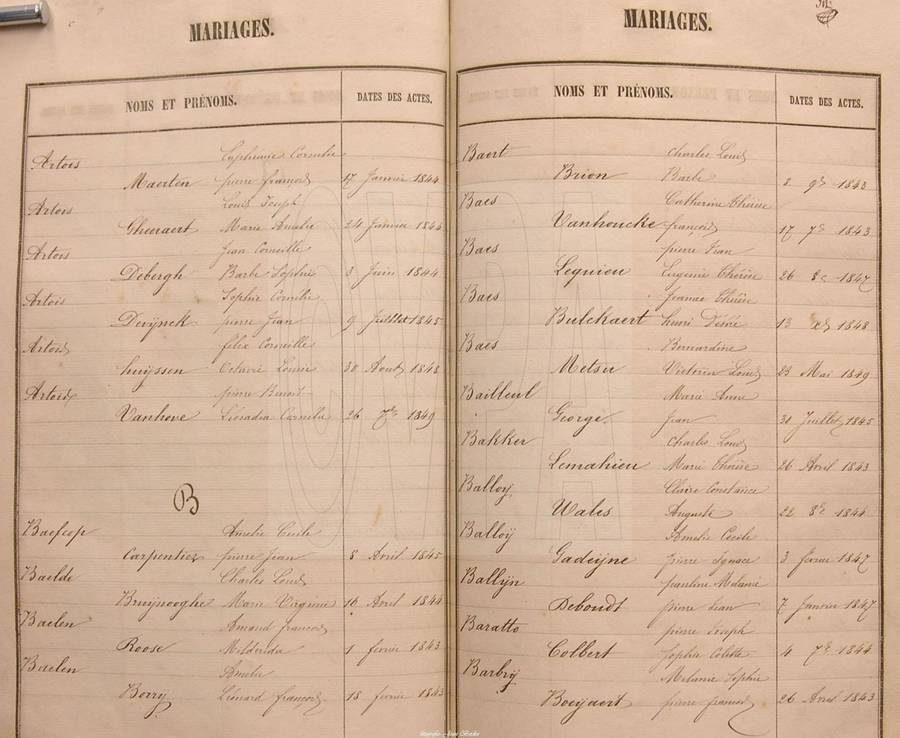 MARIAGES.
NOMS ET PRÉNOMS. DATES DES ACTES.
Artois Cornelie
Maerten pierre françois 17 Janvier 1844
Artois Louis Joseph
Gheeraert Marie Amelie 24 Janvier 1844
Artois Jean Corneille
Debergh Barbe Sophie 3 Juin 1844
Artois Sophie Cornélie
Derÿnck pierre Jean 9 Juillet 1845
Artois felix Corneille
huÿssen Octavie Louise 30 Aout 1848
Artois pierre Benoit
Vanhove Léocadia Cornelie 26 7bre 1849
B
Baefcop Amelie Cecile
Carpentier pierre Jean 8 Avril 1845
Baelde Charles Louis
Bruÿnooghe Marie Virginie 16 Avril 1844
Baelen Amand françois
Roose Mildreda 1 fevrier 1843
Baelen Amelie
Berrÿ Léonard françois 18 fevrier 1843
MARIAGES.
NOMS ET PRÉNOMS. DATES DES ACTES.
Baert Charles Louis
Brion Barbe 2 9bre 1843
Baes Catherine Thérèse
Vanhoucke françois 17 7bre 1843
Baes pierre Jean
Legnieu Eugenie Thérèse 26 8bre 1847
Baes Jeanne Thérèse
Bulckaert henri Désiré 13 1848
Baes Bernardine
Metsu Victorien Louis 23 Mai 1849
Bailleul Marie Anne
George Jean 30 Juillet 1845
Bakker Charles Louis
Lemahieu Marie Thérèse 26 Avril 1843
Balloÿ Claire Constance
Wales Auguste 22 8bre 1844
Balloÿ Amelie Cécile
Gadeÿne pierre Ignace 3 fevrier 1847
Ballÿn pauline Melanie
Deboudt pierre Jean 7 Janvier 1847
Baratto pierre Joseph
Colbert Sophie Colette 4 7bre 1844
Barbrÿ Melanie Sophie
Boeÿaert pierre françois 26 Avril 1843